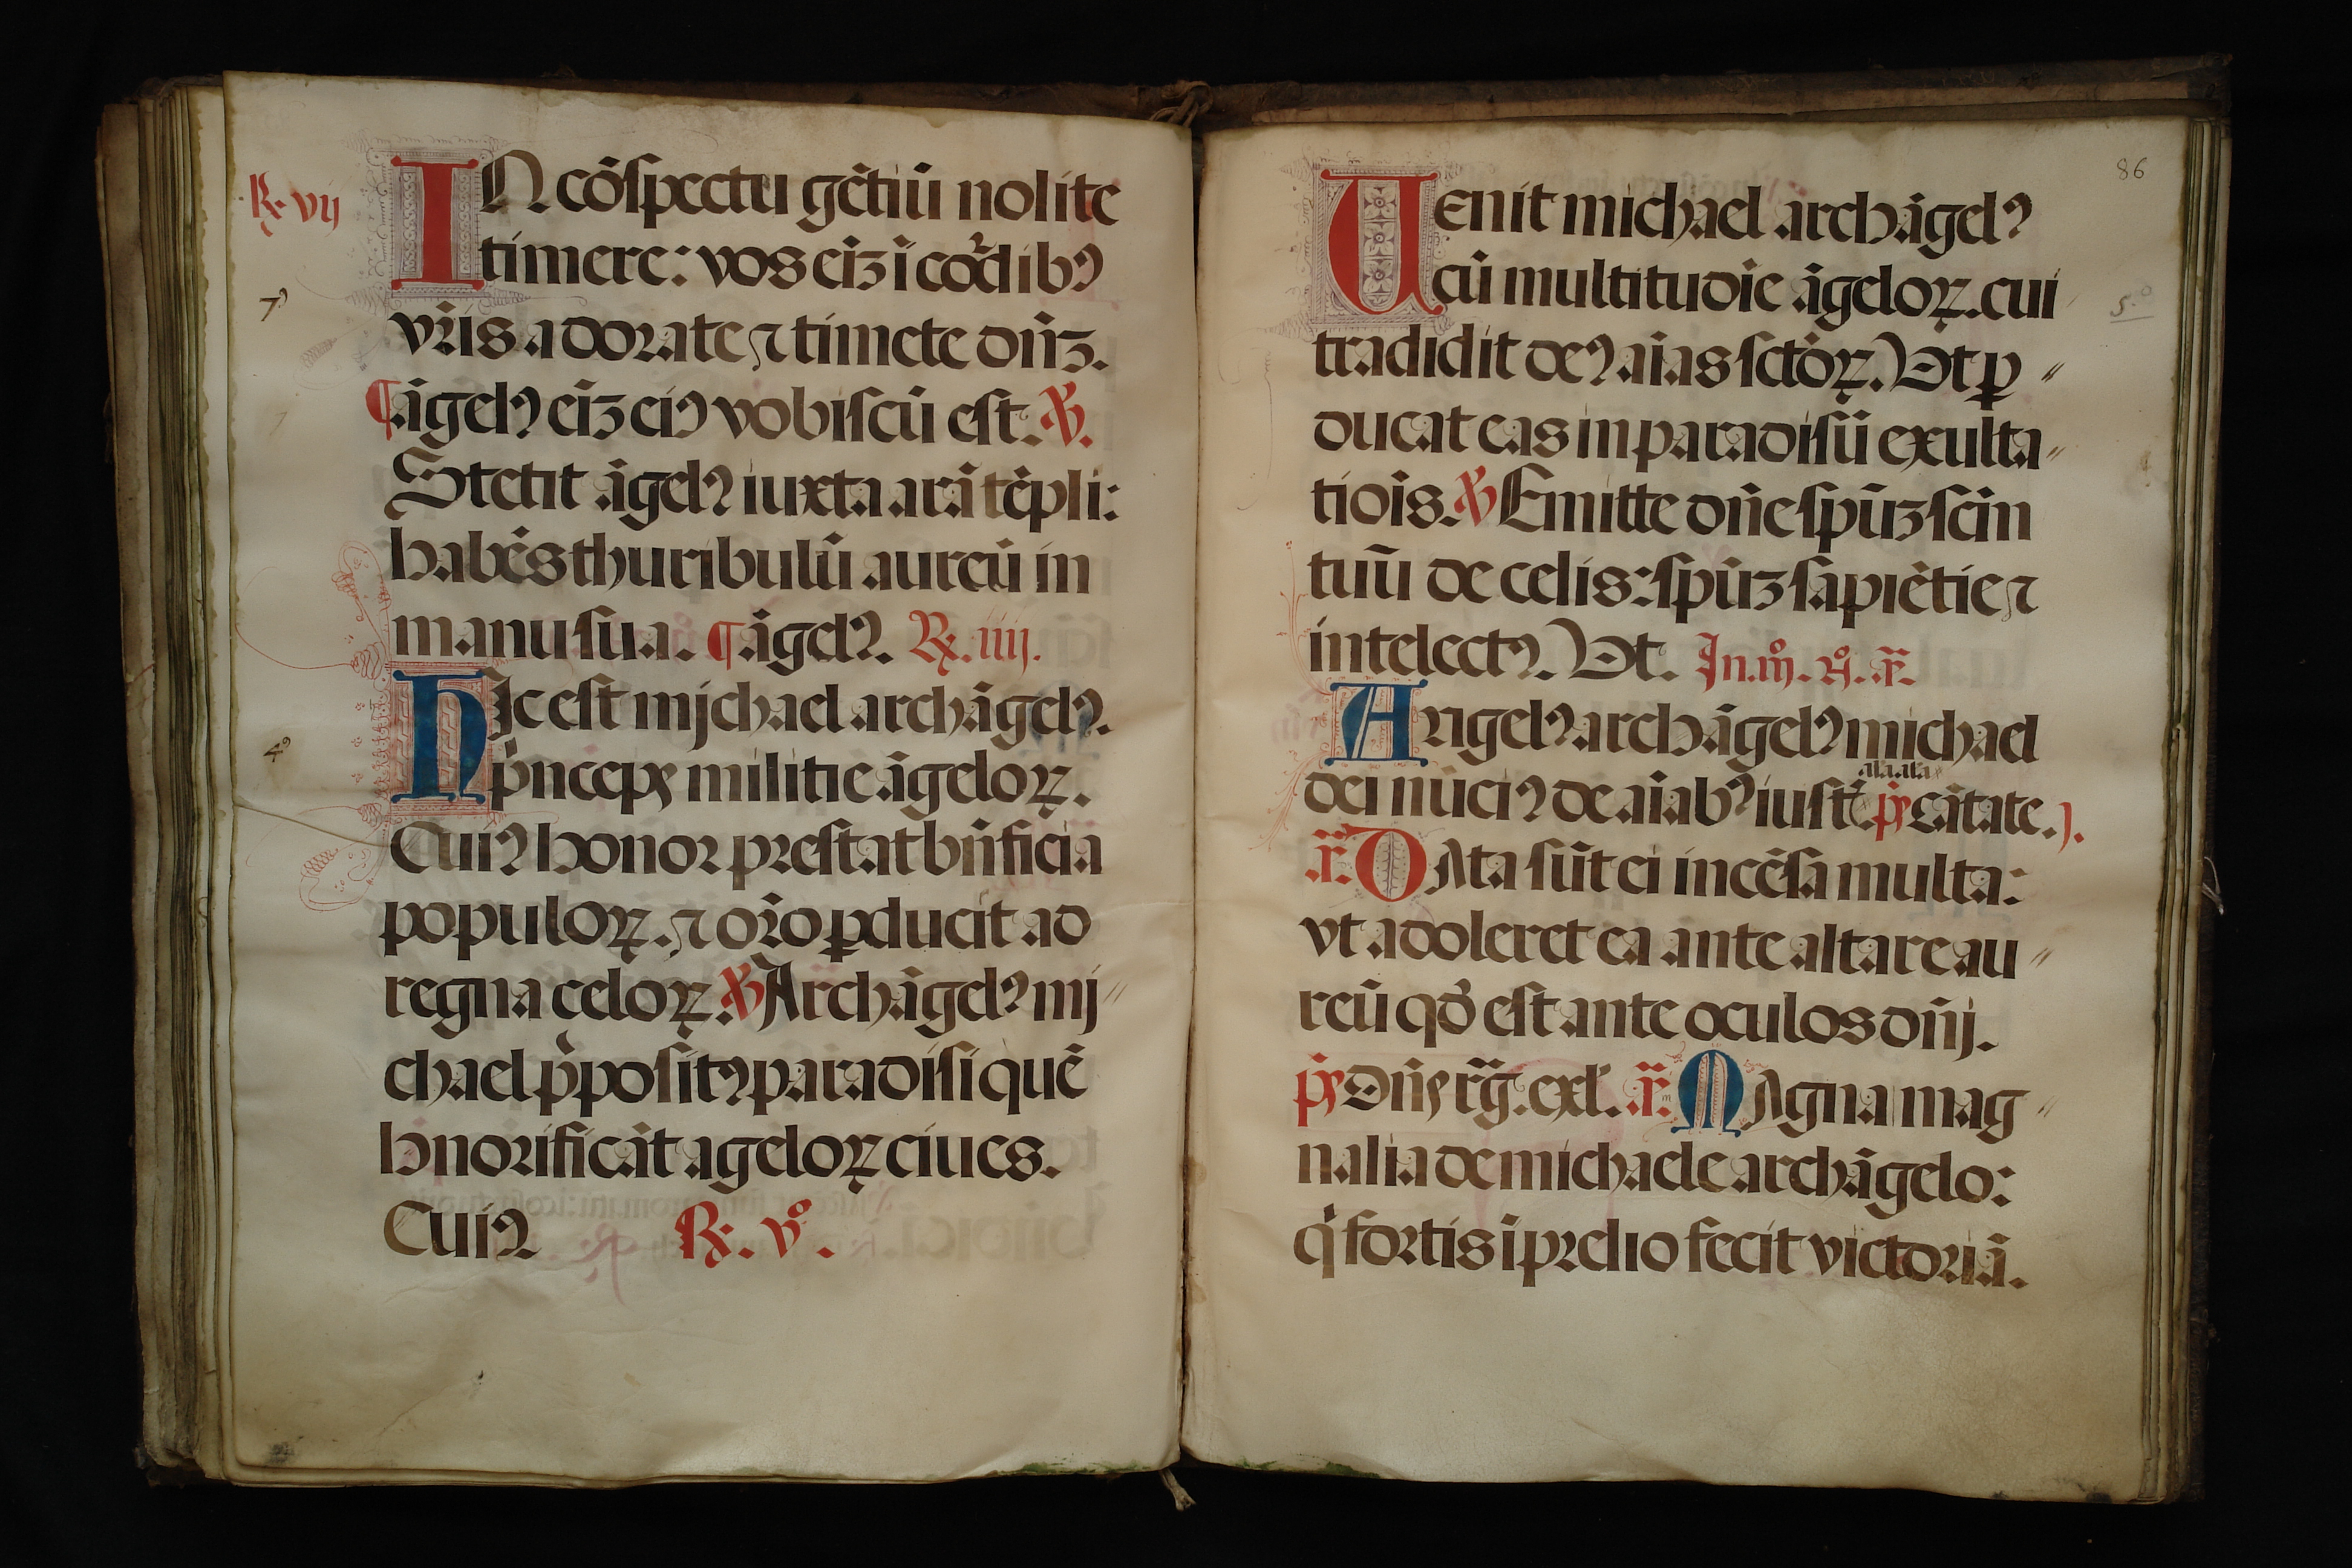 ℟. vij
IN cōspectu gētiū nolite
timere: vos eīz ī cor̄dibꝰ
7ꝰ
vr̄is adorate ⁊ timete dn̄z.
¶ āgelꝰ eīz eiꝰ vobiscū est. ℣.
Stetit āgelꝰ iuxta arā tēpli:
habēs thuribulū aureū in
manu sua. ¶ āgelꝰ. ℟. iiij.
Hjc est mjchael archāgelꝰ.
4ꝰ
p̄nceps militie āgeloꝝ.
Cuiꝰ honor prestat bn̄ficia
populoꝝ. ⁊ or̄o ꝑducit ad
regna celoꝝ. ℣ Archāgelꝰ mj
chael p̄positꝰ paradisi quē
hnorificāt ageloꝝ ciues.
Cuiꝰ ℟. vº.
86
Uenit michael archāgelꝰ
cū multitudīe āgeloꝝ. cui
5.º
tradidit deꝰ aīas sctōꝝ. Ut ꝑ
ducat eas in paradisū exulta
tiōis. ℣ Emitte dn̄e spūz scīn
tuū de celis: spūz sapiētie ⁊
intelectꝰ. Ut. In. .
Angelꝰ archāgelꝰ michael
ala.ala
dei nūciꝰ de aīabꝰ iustꝭ. ps̄ cātate.).
añ. DAta sūt ei incēsa multa:
vt adoleret ea ante altare au
reū qd̄ est ante oculos dn̄j.
ps̄ Dn̄s rḡ. exl. añ. MAgna mag
nalia de michaele archāgelo:
q̄ fortis ī prelio fecit victoriā.